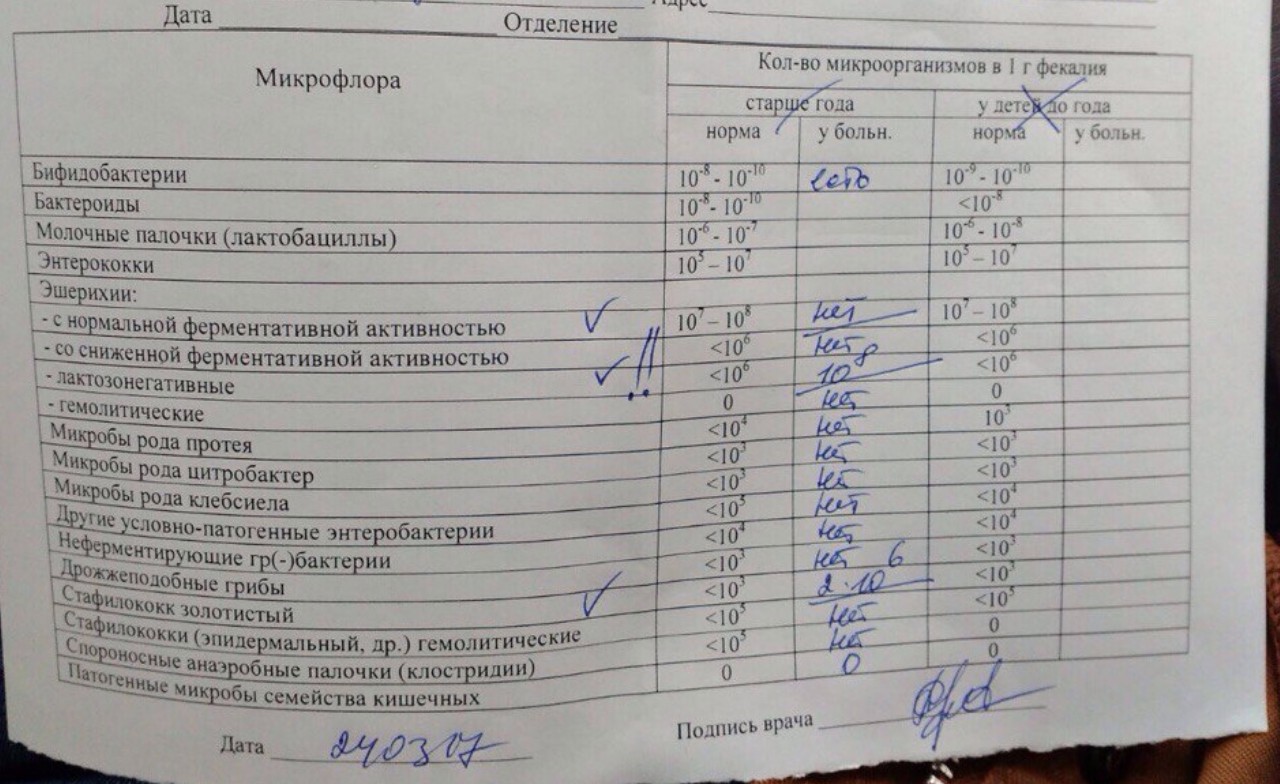 Дата Отделение
Микрофлора Кол-во микроорганизмов в 1 г фекалия
старше года у детей до года
норма у больн. норма у больн.
Бифидобактерии 10⁻⁸ - 10⁻¹⁰ есть 10⁻⁹ - 10⁻¹⁰
Бактероиды 10⁻⁸- 10⁻¹⁰ <10⁻⁸
Молочные палочки (лактобациллы) 10⁻⁶ - 10⁻⁷ 10⁻⁶ - 10⁻⁸
Энтерококки 10⁵ – 10⁷ 10⁵ – 10⁷
Эшерихии:
- с нормальной ферментативной активностью 10⁷ – 10⁸ нет 10⁷ – 10⁸
- со сниженной ферментативной активностью !! <10⁶ нет <10⁶
- лактозонегативные <10⁶ 10⁸ <10⁶
- гемолитические 0 нет 0
Микробы рода протея <10⁴ нет 10³
Микробы рода цитробактер <10³ нет <10³
Микробы рода клебсиела <10³ нет <10³
Другие условно-патогенные энтеробактерии <10⁵ нет <10⁴
Неферментирующие гр(-)бактерии <10⁴ нет <10⁴
Дрожжеподобные грибы <10³ нет <10³
Стафилококк золотистый <10³ 2·10⁶ <10³
Стафилококки (эпидермальный, др.) гемолитические <10⁵ нет <10⁵
Спороносные анаэробные палочки (клостридии) <10⁵ нет 0
Патогенные микробы семейства кишечных 0 0 0
Дата 240307 Подпись врача